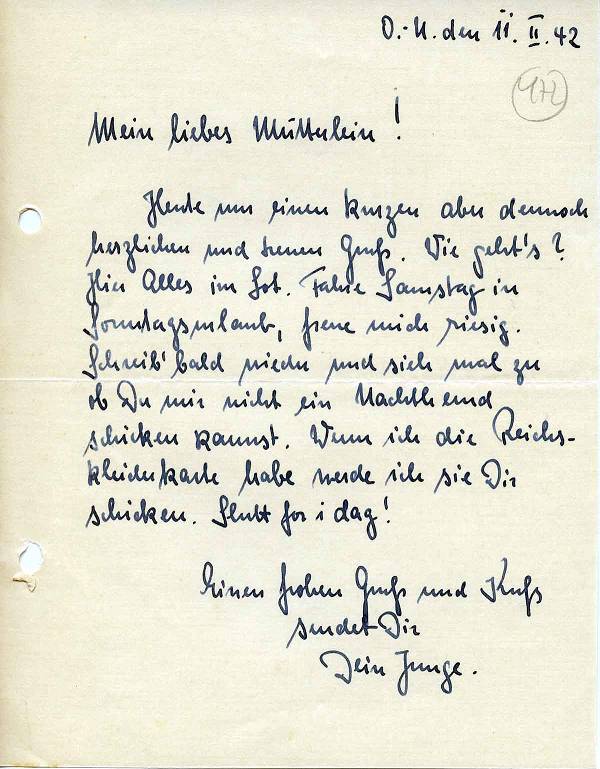 O.-U. den 11. II. 42
Mein liebes Mütterlein!
Heute nur einen kurzen aber dennoch
herzlichen und treuen Gruß. Wie geht's?
Hier Alles im Lot. Fahre Samstag in
Sonntagsurlaub, freue mich riesig.
Schreib' bald wieder und sieh mal zu
ob Du mir nicht ein Nachthemd
schicken kannst. Wenn ich die Reichs-
kleiderkarte habe werde ich sie Dir
schicken. Slutt for i dag!
Einen frohen Gruß und Kuß
sendet Dir
Dein Junge.